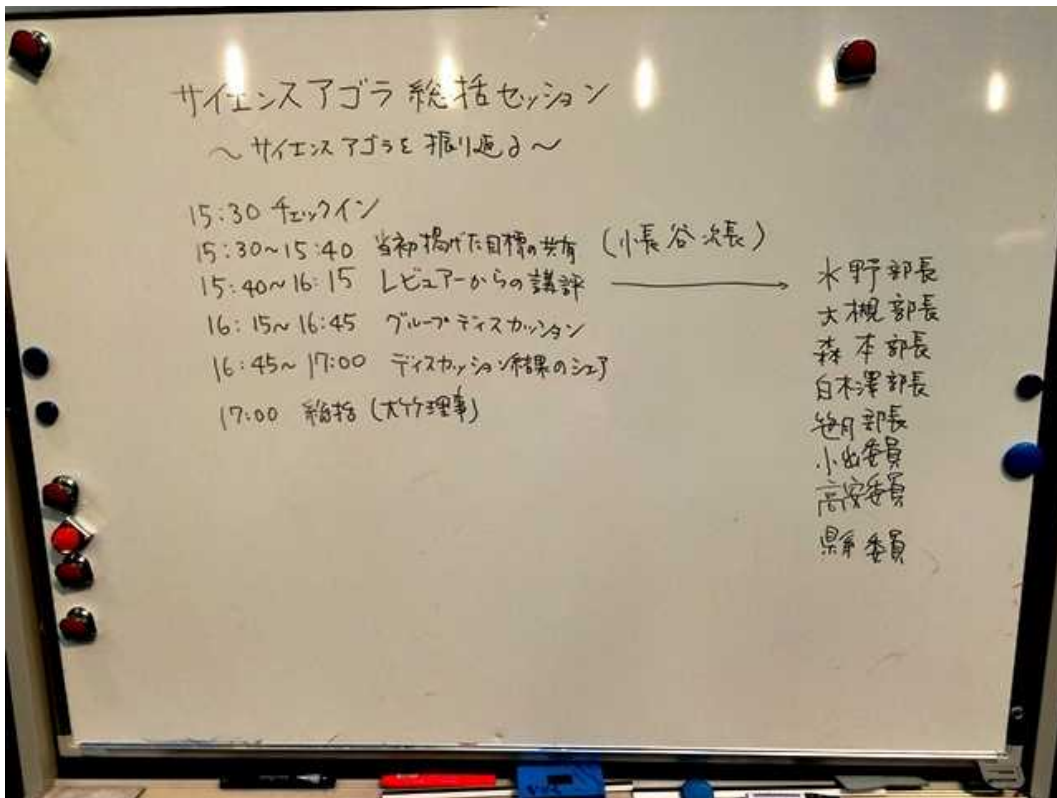 サイエンスアゴラ 総括セッション
～サイエンスアゴラを振り返る～
15:30 チェックイン
15:30～15:40 当初掲げた目標の共有 (小長谷次長)
15:40～16:15 レビュアーからの講評 →
16:15～16:45 グループディスカッション
16:45～17:00 ディスカッション結果のシェア
17:00 総括 (大竹理事)
水野部長
大槻部長
森本部長
白木澤部長
笹月部長
小出委員
高安委員
縣委員